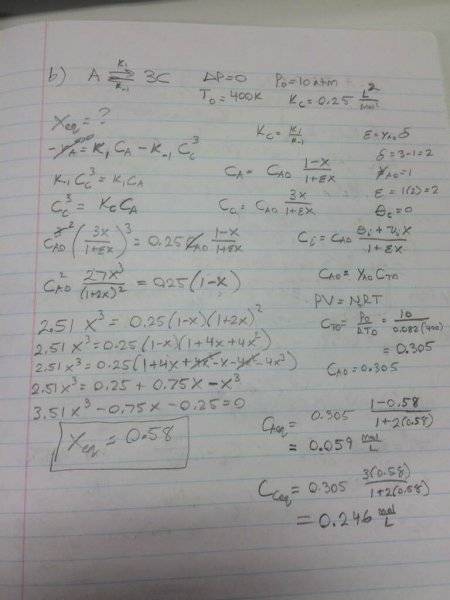 b) A ⇌ 3C   K₁   K₋₁   ΔP=0   P₀=10 atm
T₀=400K   K_C=0.25 L²/mol²
X_eq=?   K_C=K₁/K₋₁   ε=y_A0 δ
-r_A=K₁C_A-K₋₁C_C³   δ=3-1=2
K₋₁C_C³=K₁C_A   C_A=C_A0 (1-X)/(1+εX)   y_A0=1
C_C³=K_C C_A   C_C=C_A0 3X/(1+εX)   ε=1(2)=2
θ_C=0
C_A0³ (3X/(1+εX))³=0.25 C_A0 (1-X)/(1+εX)   C_i=C_A0 (θ_i+ν_iX)/(1+εX)
C_A0² 27X³/(1+2X)²=0.25(1-X)   C_A0=y_A0 C_T0
PV=NRT
2.51X³=0.25(1-X)(1+2X)²   C_T0=P₀/RT₀=10/0.082(400)
2.51X³=0.25(1-X)(1+4X+4X²)   =0.305
2.51X³=0.25(1+4X+4X²-X-4X²-4X³)   C_A0=0.305
2.51X³=0.25+0.75X-X³
3.51X³-0.75X-0.25=0
X_eq=0.58   C_Aeq=0.305 (1-0.58)/(1+2(0.58))
=0.059 mol/L
C_Ceq=0.305 3(0.58)/(1+2(0.58))
=0.246 mol/L